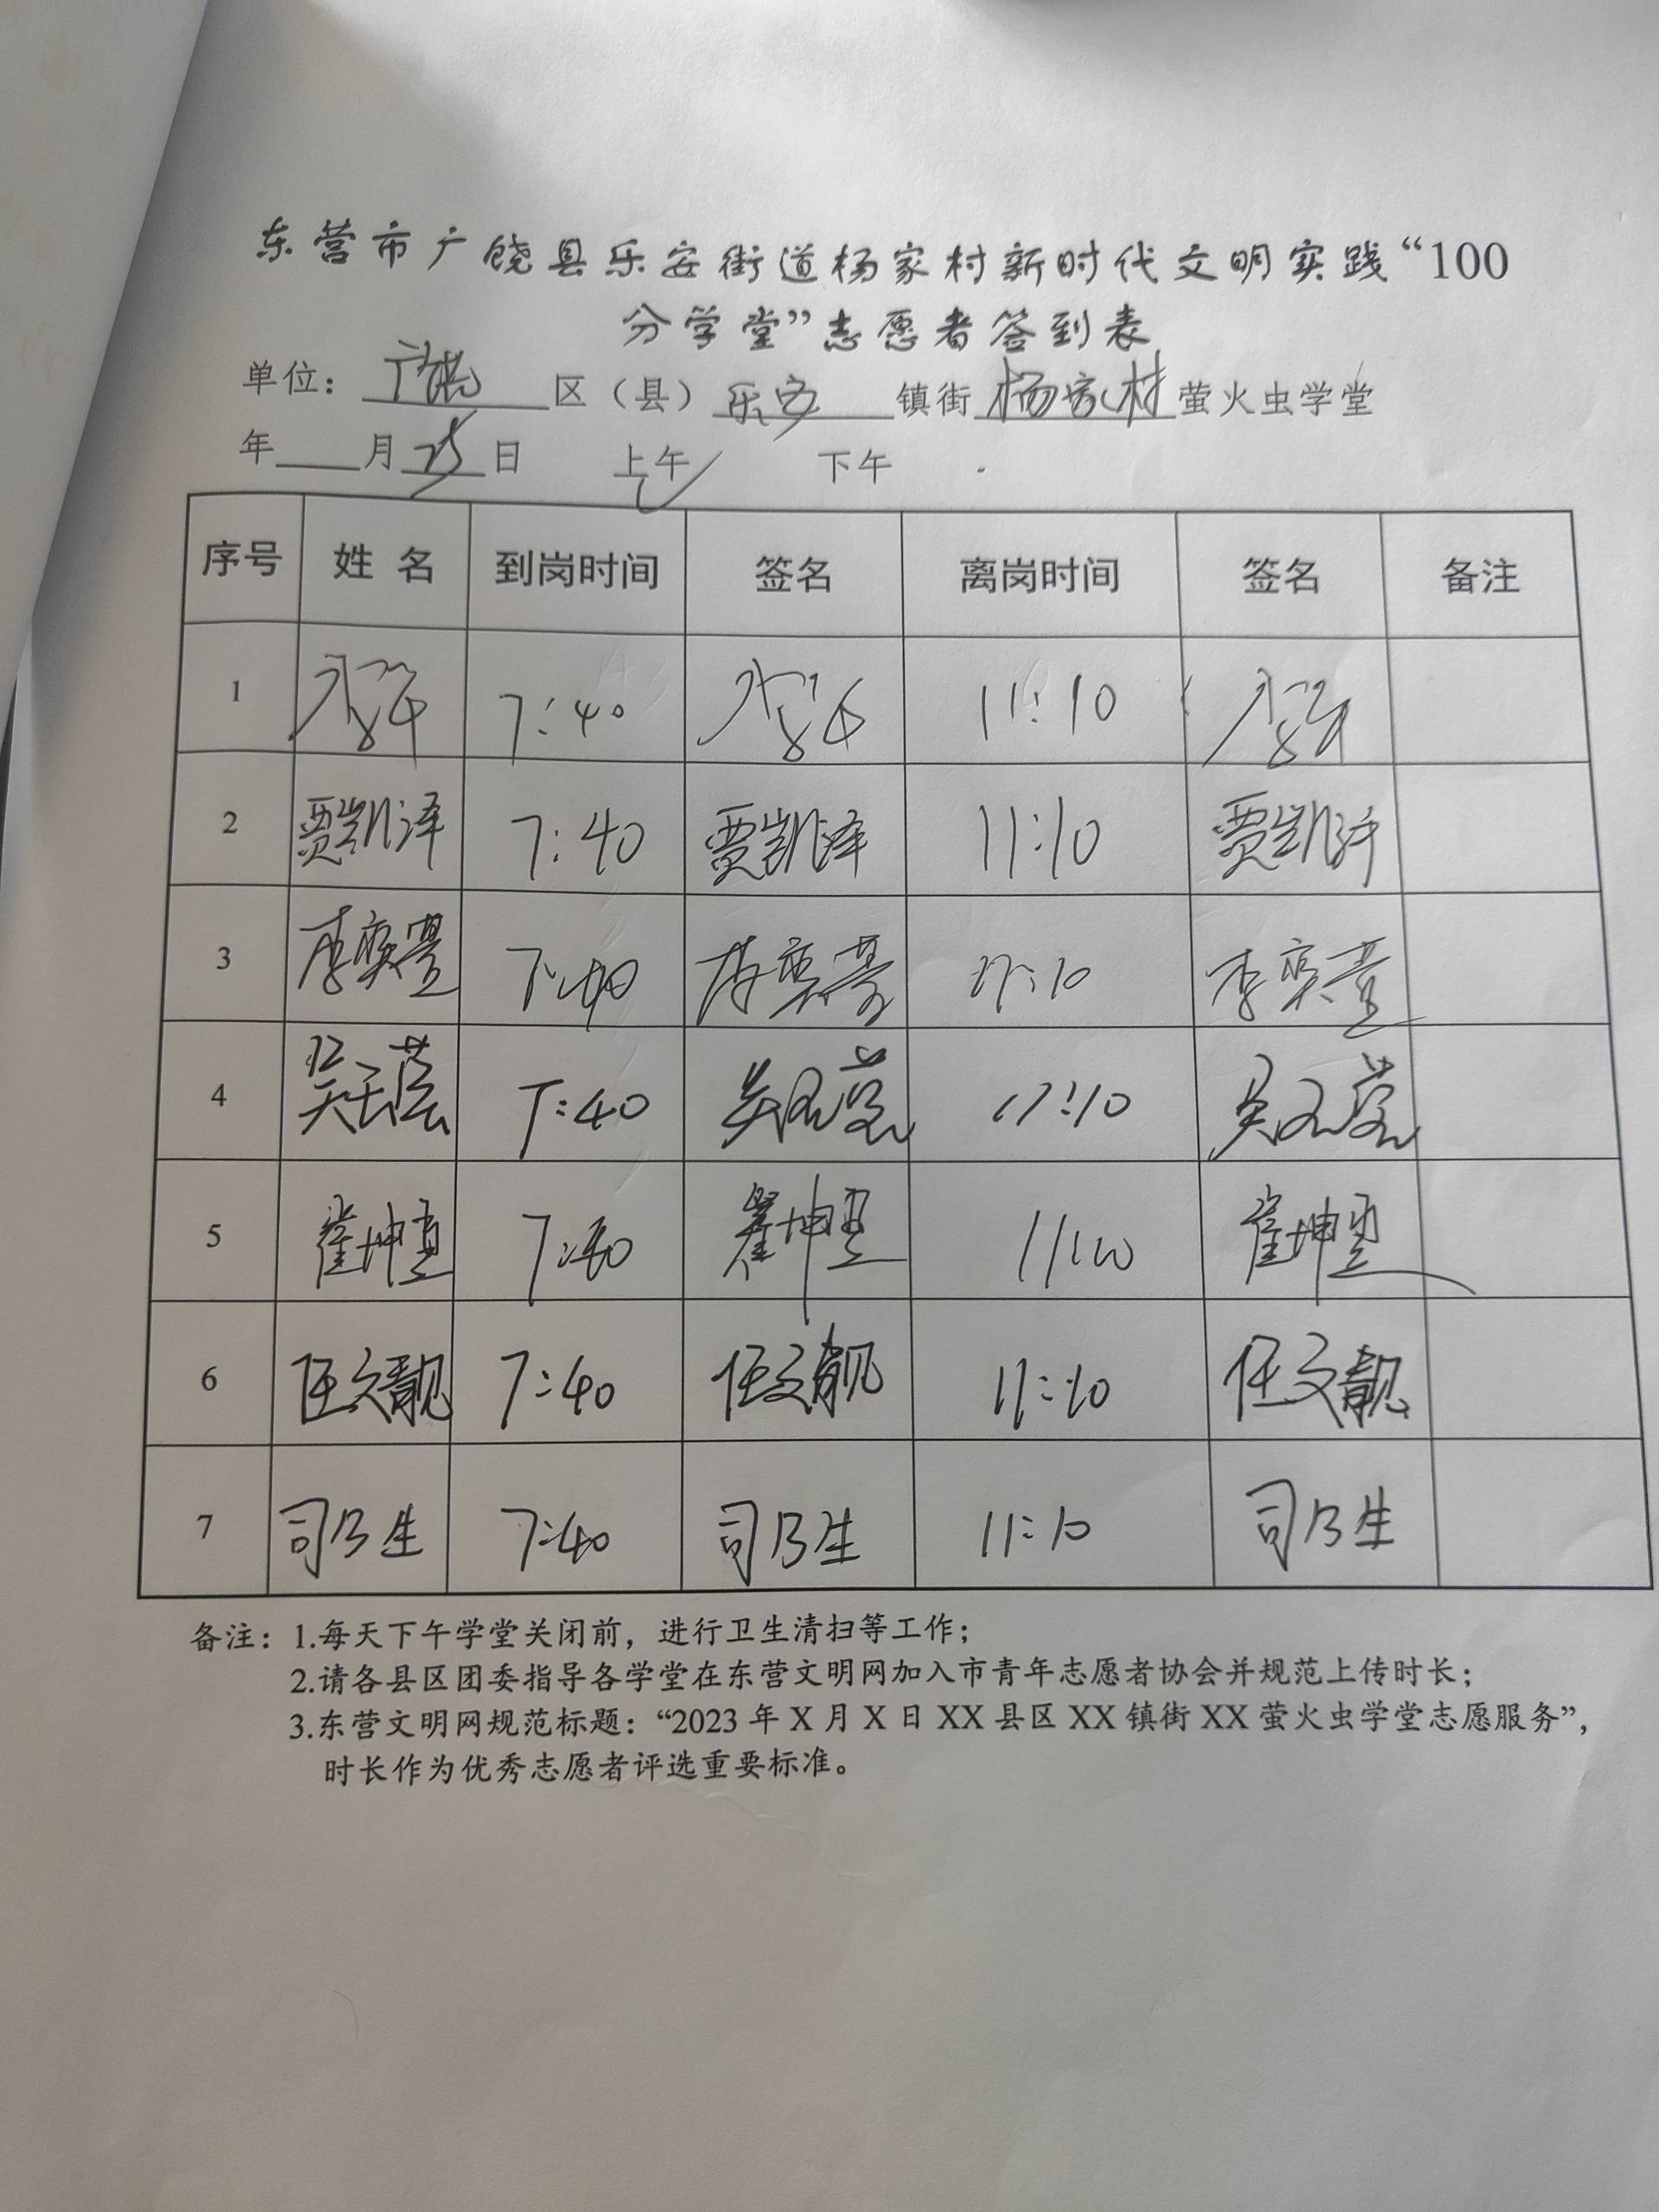 东营市广饶县乐安街道杨家村新时代文明实践“100
分学堂”志愿者签到表
单位：广饶区（县）乐安镇街杨家村萤火虫学堂
年 月25日 上午✓ 下午
序号 姓名 到岗时间 签名 离岗时间 签名 备注
1 7:40 11:10
2 贾凯泽 7:40 贾凯泽 11:10 贾凯泽
3 李奕萱 7:40 李奕萱 11:10 李奕萱
4 7:40 11:10
5 崔坤 7:40 坤 11:10 崔坤
6 任文靓 7:40 任文靓 11:10 任文靓
7 司乃生 7:40 司乃生 11:10 司乃生
备注：1.每天下午学堂关闭前，进行卫生清扫等工作；
2.请各县区团委指导各学堂在东营文明网加入市青年志愿者协会并规范上传时长；
3.东营文明网规范标题：“2023年X月X日XX县区XX镇街XX萤火虫学堂志愿服务”，
时长作为优秀志愿者评选重要标准。